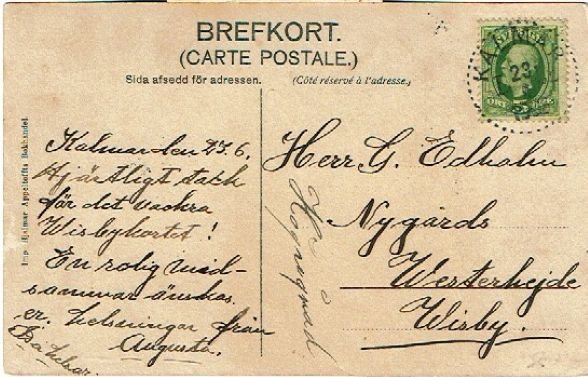 BREFKORT.
(CARTE POSTALE.)
Sida afsedd för adressen.
(Côté réservé à l'adresse.)
KALMAR
23
5
ÖRE
Imp. Hjalmar Appeltoffts Bokhandel
Kalmar den 23.6.
Hjärtligt tack
för det vackra
Wisbykortet!
En rolig mid-
sommar önskas
er. helsningar från
Augusta.
Herr G. Edholm
Nygårds
Westerhejde
Wisby.